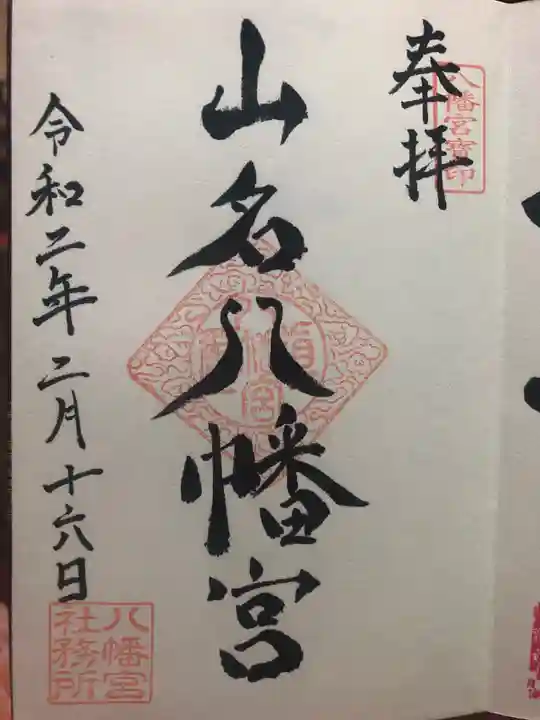 奉拝
八幡宮寶印
山名八幡宮
令和二年二月十六日
八幡宮
社務所